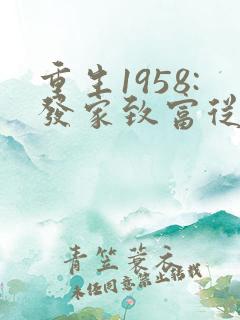 重生1958:
發家致富從
青笠蓑衣
未经同意禁止转载